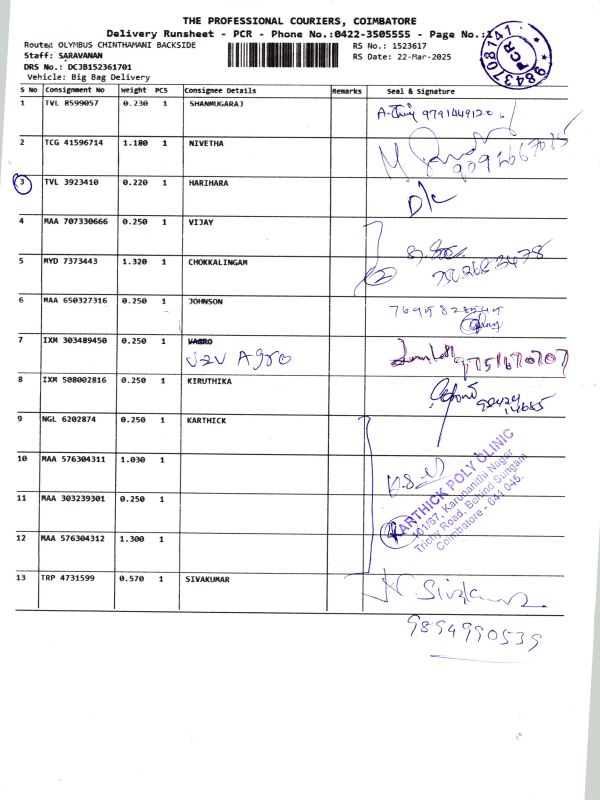 THE PROFESSIONAL COURIERS, COIMBATORE
Delivery Runsheet - PCR - Phone No.:0422-3505555 - Page No.:1
Route: OLYMBUS CHINTHAMANI BACKSIDE RS No.: 1523617
Staff: SARAVANAN RS Date: 22-Mar-2025
DRS No.: DCJB152361701
Vehicle: Big Bag Delivery
9843708141 PCR
S No Consignment No Weight PCS Consignee Details Remarks Seal & Signature
1 TVL 8599057 0.230 1 SHANMUGARAJ
2 TCG 41596714 1.180 1 NIVETHA
3 TVL 3923410 0.220 1 HARIHARA D/c
4 MAA 707330666 0.250 1 VIJAY
5 MYD 7373443 1.320 1 CHOKKALINGAM
6 MAA 650327316 0.250 1 JOHNSON
7 IXM 303489450 0.250 1 VAGRO 9751670707
V2V AGRO
8 IXM 508002816 0.250 1 KIRUTHIKA
9 NGL 6202874 0.250 1 KARTHICK
10 MAA 576304311 1.030 1
11 MAA 303239301 0.250 1
12 MAA 576304312 1.300 1
KARTHICK POLY CLINIC
101/67, Karunanithi Nagar
Trichy Road, Behind Sungam
Coimbatore - 641 045.
13 TRP 4731599 0.570 1 SIVAKUMAR
9894990539